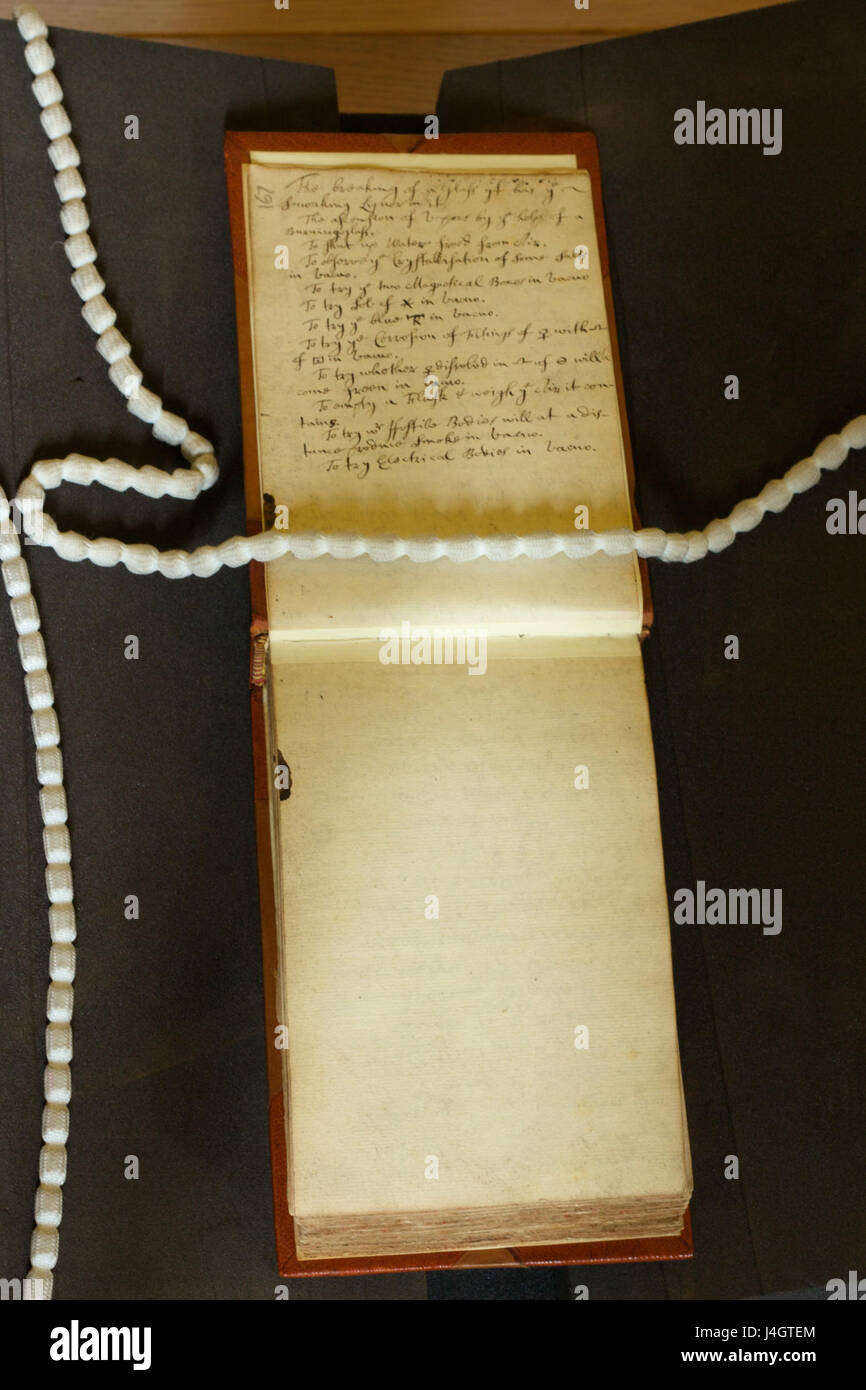 167
The breaking of a Glass yt has ye
smoaking Liquor in it.
The ascension of Vapors by ye help of a
Burningglass.
To shut up Water freed from Air.
To observe ye Crystallisation of some Salts
in vacuo.
To try ye two Magnetical Boxes in vacuo
To try Sol of in vacuo.
To try ye blue in vacuo.
To try ye Corrosion of Filings of ♀ with
of in vacuo.
To try whether ♀ dissolved in of will be
come Green in vacuo.
To empty a & weigh ye Air it con
tains.
To try wr ffossile Bodies will at a dis-
tance produce smoke in vacuo.
To try Electrical Bodies in vacuo.
alamy
alamy
a
Image ID: J4GTEM
www.alamy.com